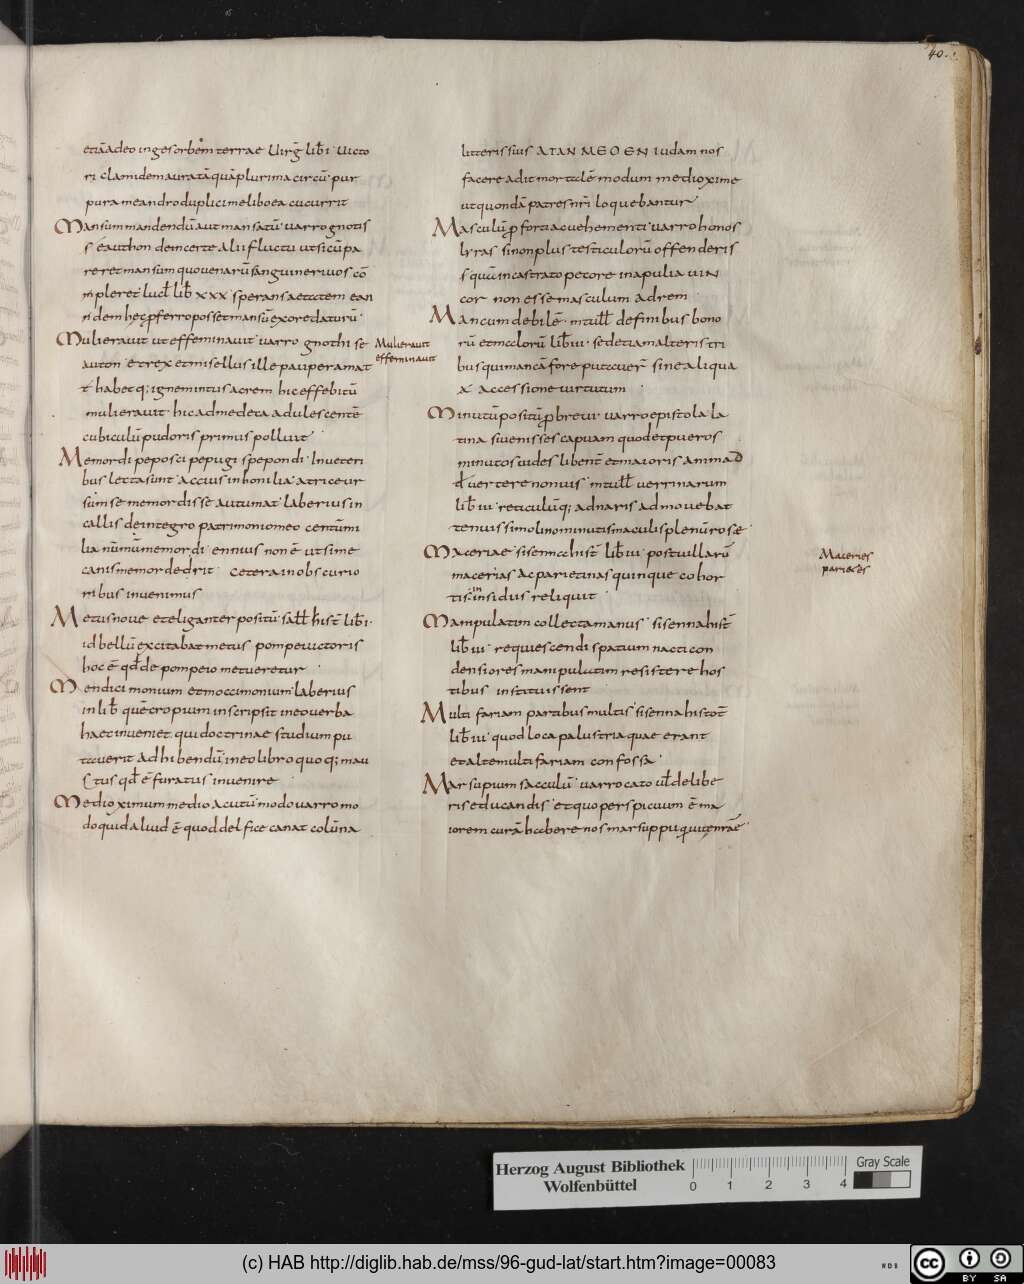 40.
etiā adeo ingesorbem terrae Uirḡ lib̄ i uicto
ri clamidem auratā quā plurima circū pur
pura meandro duplici meliboea cucurrit
Mansum mandendū aut mansatū uarro gnotis
seauthon dein certe alii fluctu ut sicū pa
reret mansum quo uenarū sanguine riuos cō
pleret lucł lib̄ xxx sperans aetatem ean
dem hęc ꝑ ferro posset mansū ex ore daturū
Mulierauit ut effeminauit uarro gnothi se
auton et rex et misellus ille pauper amat
habetq; ignem intus acrem hic effebitū
mulierauit hic ad medeta adulescentē
cubiculū pudoris primus polluit
Memordi peposci pepugi spepondi In ueteri
bus lecta sunt Accius inboni lia atriceur
sum se memordisse autumat laberius in
callis de integro patrimonio meo centūmi
lia nūmū memordi ennius non ē ut sime
canis memorderit cetera in obscurio
ribus inuenimus
Metus noue et eliganter positū sałł hist̄ lib̄ i
id bellū excitabat metus pompei uictoris
hoc ē qd̄ de pompeio metueretur
Mendicimonium et moccimonium laberius
in lib̄ quē cropium inscripsit ineo uerba
haec inueniet qui doctrinae studium pu
tauerit adhibendū in eo libro quoq; mau
tus qd̄ ē furatus inuenire
Medioximum medio acutū modo uarro mo
do quid aliud ē quod delfice canat colūna
Mulierauit
effeminauit
litteris suis ATAN ΜΕΘΕΝ iudam nos
facere adit mortalē modum medioxime
ut quondā patres nr̄i loquebantur
Masculū ꝓ forti ac uehementi uarro honos
lyras si non plus testiculorū offenderis
quā in castrato pecore in apulia uin
cor non esse masculum ad rem
Mancum debilē mtułł de finibus bono
rū et malorū lib̄ iiii sed etiam alteris tri
bus qui mancā fore putauer̄ sine aliqua
accessione uirtutum
Minutū positū ꝓ breui uarro epistola la
tina si uenisses capuam quod et pueros
minutos uides libent̄ et maioris animad
uertere non uis mtułł uerrinarum
lib̄ iii reticulūq; ad naris admouebat
tenuissimo lino minutis maculis plenū rose
Maceriae sisenna hist̄ lib̄ iii postuillarū
macerias ac parietinas quinque cohor
tis in insidus reliquit
Manipulatim collecta manus sisenna hist̄
lib̄ iii requiescendi spatium nacti con
densiores manipulatim resistere hos
tibus instituissent
Multifariam partibus multis sisenna histor̄
lib̄ iii quod loca palustria quae erant
et alte multifariam confossa
Marsupium sacculū uarro cato uł de libe
ris educandis et quo perspicuum ē ma
iorem curā habere nos marsuppii
Maceries
parietes
Herzog August Bibliothek
Wolfenbüttel
0 1 2 3 4
Gray Scale
(c) HAB http://diglib.hab.de/mss/96-gud-lat/start.htm?image=00083
cc BY SA